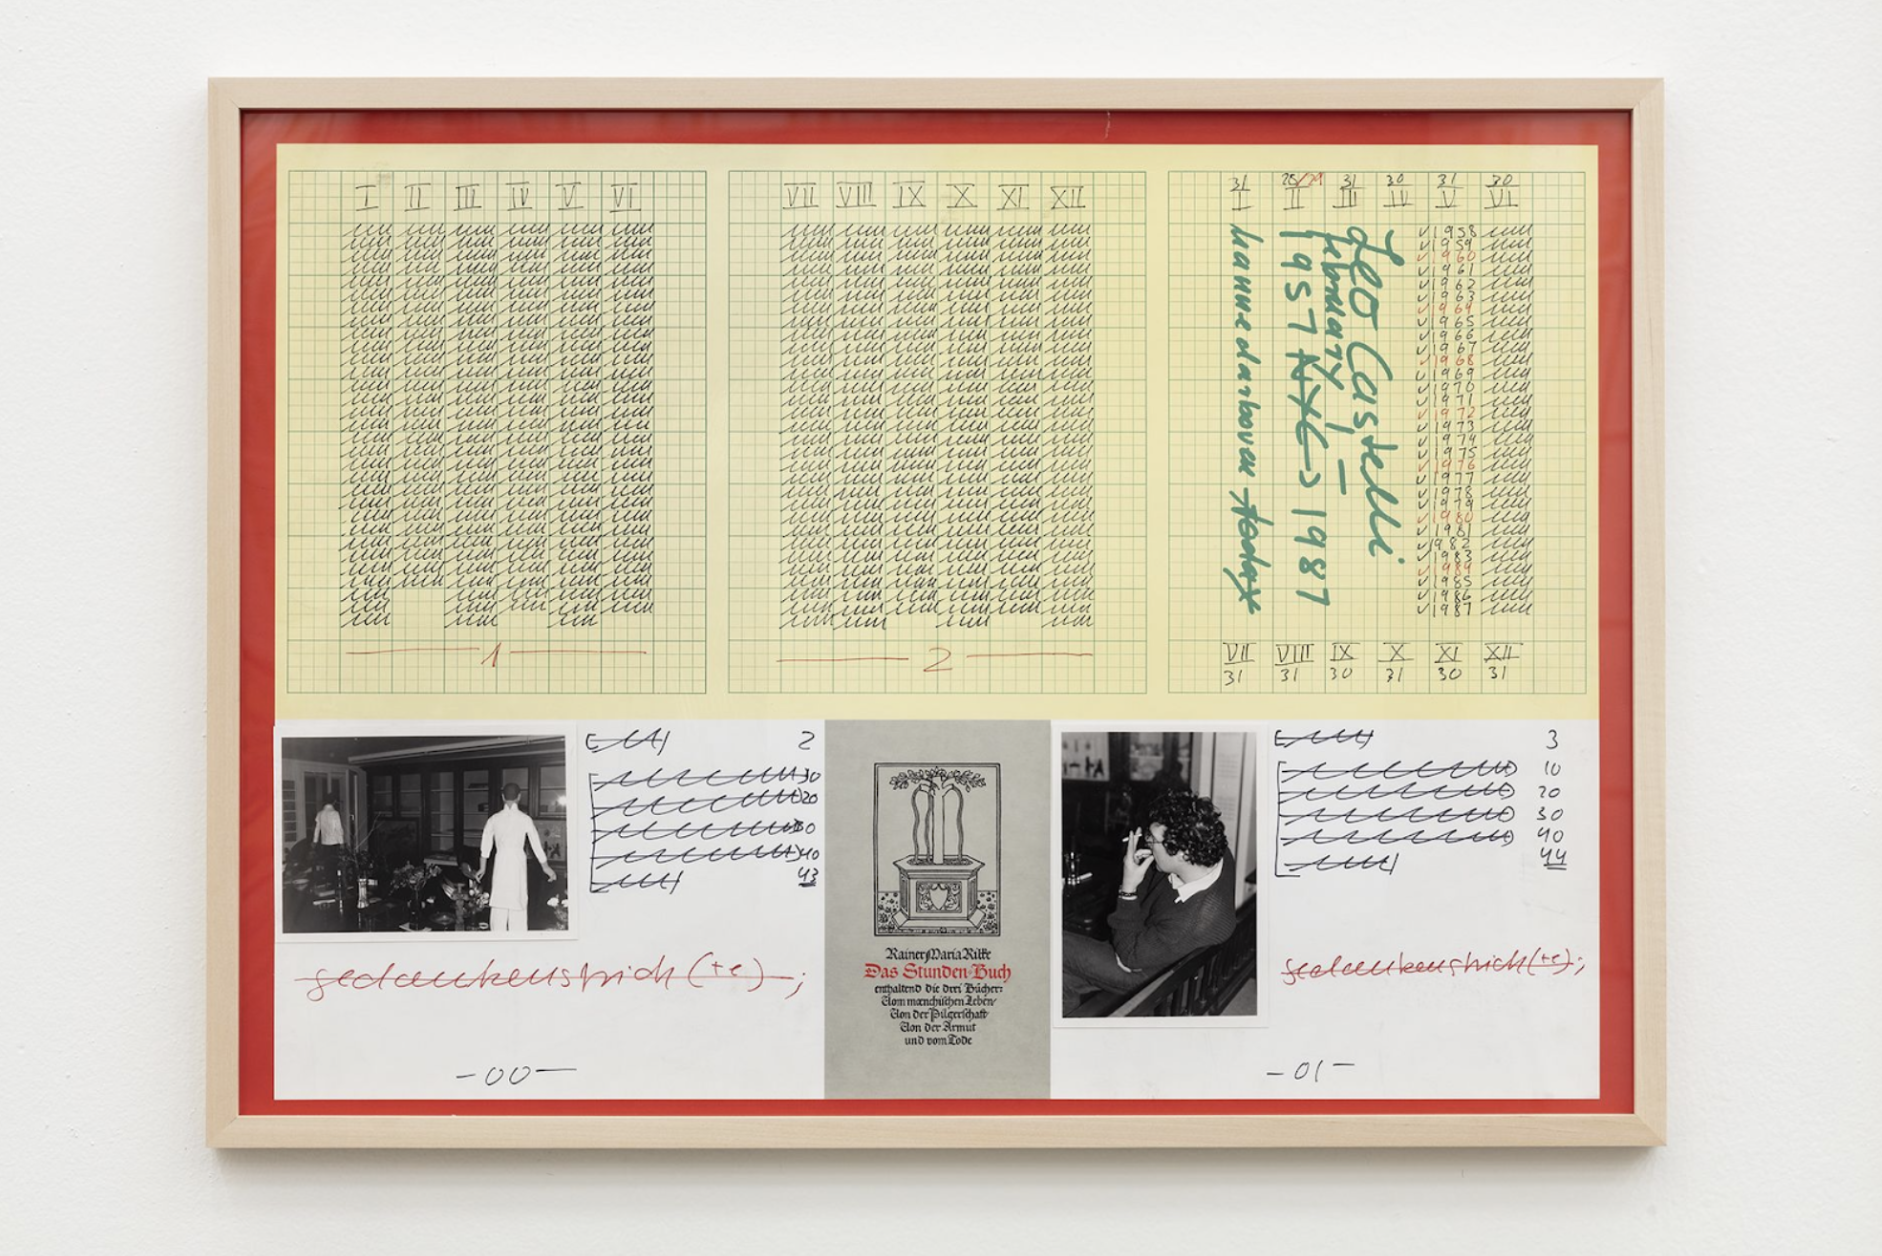 I II III IV V VI
1
VII VIII IX X XI XII
2
31 28/29 31 30 31 30
I II III IV V VI
Leo Castelli
february 1 –
1957 N.Y.C. → 1987
hanne darboven today
1958
1959
1960
1961
1962
1963
1964
1965
1966
1967
1968
1969
1970
1971
1972
1973
1974
1975
1976
1977
1978
1979
1980
1981
1982
1983
1984
1985
1986
1987
VII VIII IX X XI XII
31 31 30 31 30 31
2
20
40
43
gedankenstrich(+e);
–00–
Rainer Maria Rilke
Das Stunden-Buch
enthaltend die drei Bücher:
Vom mœnchischen Leben/
Von der Pilgerschaft/
Von der Armut
und vom Tode
3
10
20
30
40
44
gedankenstrich(+e);
–01–